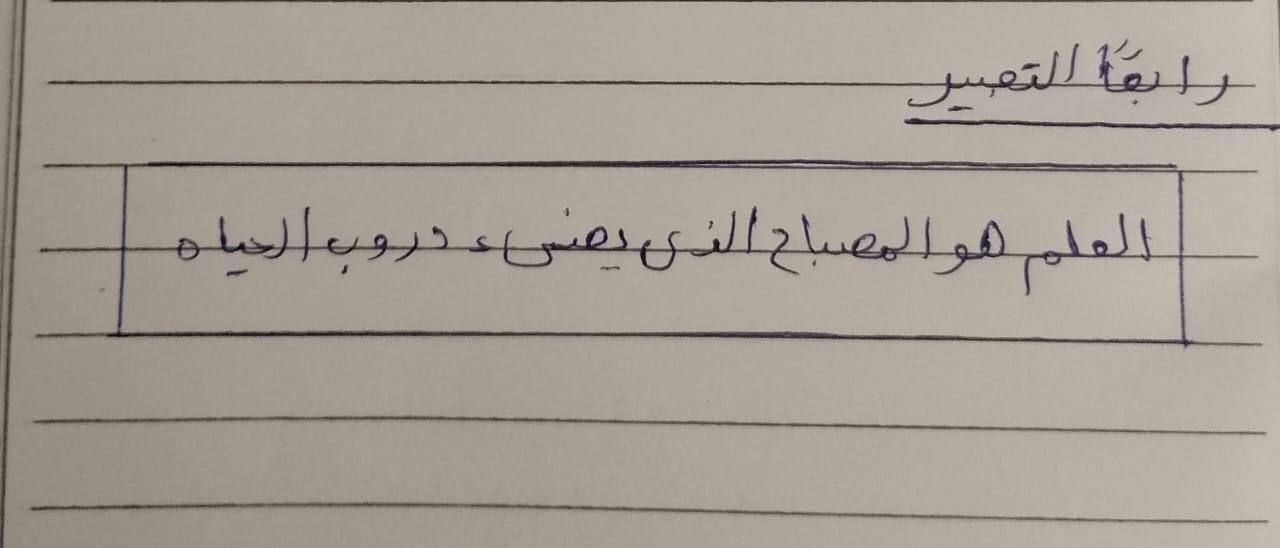 رابعًا التعبير
العلم هو المصباح الذى يضىء دروب الحياه